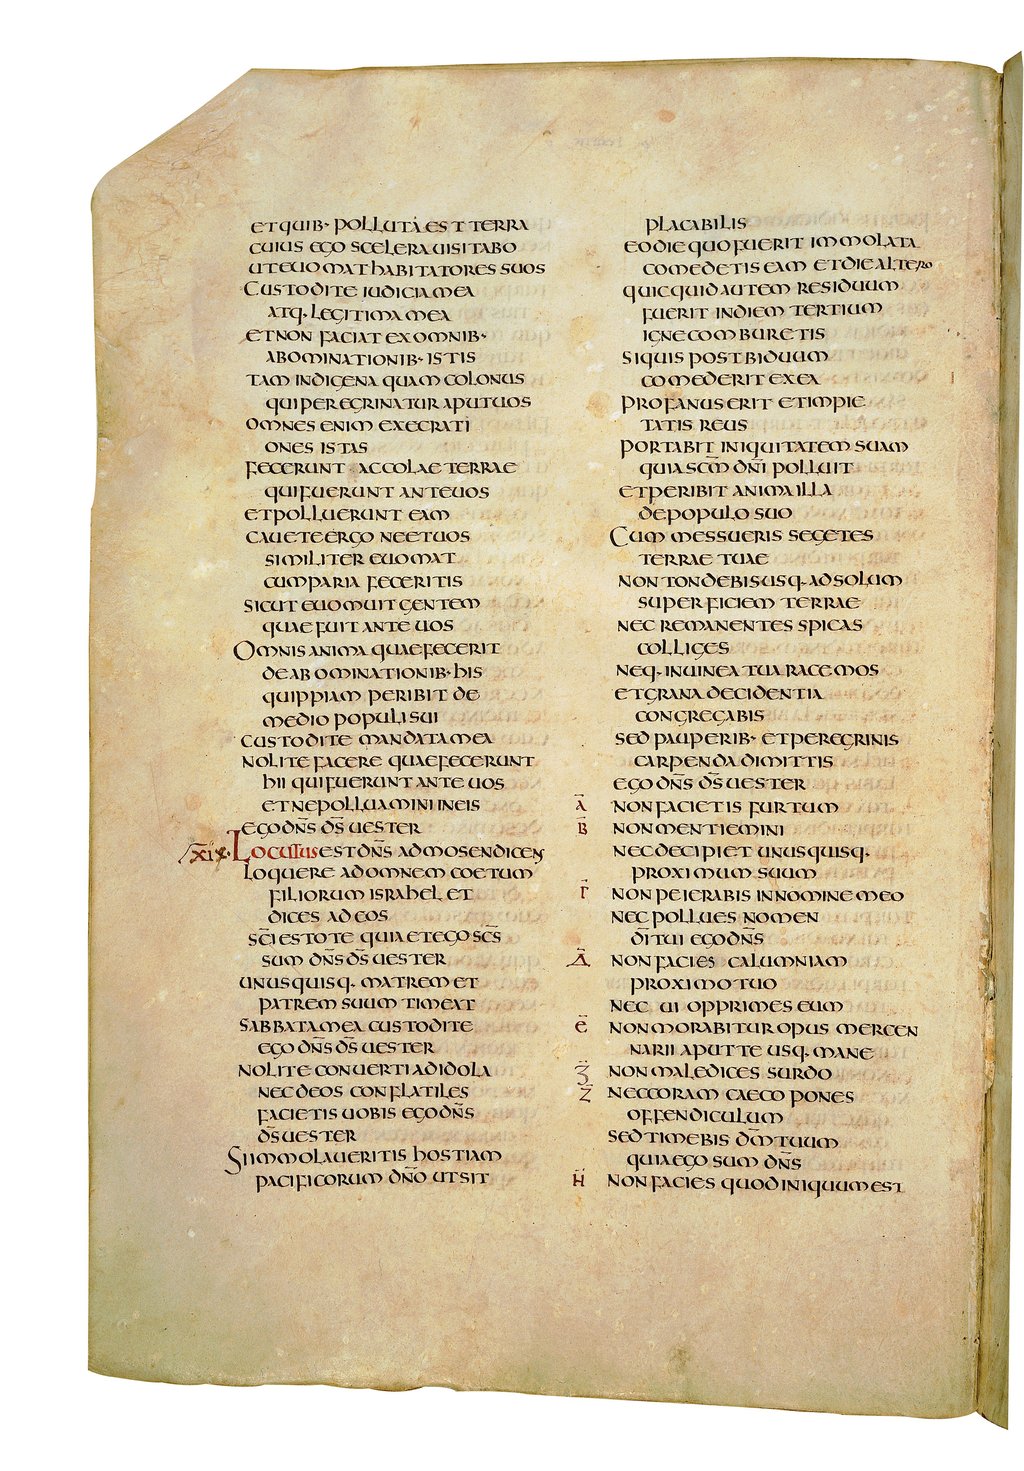 ET QUIB· POLLUTA EST TERRA
CUIUS EGO SCELERA UISITABO
UT EUOMAT HABITATORES SUOS
CUSTODITE IUDICIA MEA
ATQ· LEGITIMA MEA
ET NON FACIAT EX OMNIB·
ABOMINATIONIB· ISTIS
TAM INDIGENA QUAM COLONUS
QUI PEREGRINATUR APUT UOS
OMNES ENIM EXECRATI
ONES ISTAS
FECERUNT ACCOLAE TERRAE
QUI FUERUNT ANTE UOS
ET POLLUERUNT EAM
CAUETE ERGO NE ET UOS
SIMILITER EUOMAT
CUM PARIA FECERITIS
SICUT EUOMUIT GENTEM
QUAE FUIT ANTE UOS
OMNIS ANIMA QUAE FECERIT
DE ABOMINATIONIB· HIS
QUIPPIAM PERIBIT DE
MEDIO POPULI SUI
CUSTODITE MANDATA MEA
NOLITE FACERE QUAE FECERUNT
HII QUI FUERUNT ANTE UOS
ET NE POLLUAMINI IN EIS
EGO DN̄S D̄S UESTER
XIX· LOCUTUS EST DN̄S AD MOSEN DICENS
LOQUERE AD OMNEM COETUM
FILIORUM ISRAHEL ET
DICES AD EOS
SC̄I ESTOTE QUIA ET EGO SC̄S
SUM DN̄S D̄S UESTER
UNUSQUISQ· MATREM ET
PATREM SUUM TIMEAT
SABBATA MEA CUSTODITE
EGO DN̄S D̄S UESTER
NOLITE CONUERTI AD IDOLA
NEC DEOS CONFLATILES
FACIETIS UOBIS EGO DN̄S
D̄S UESTER
SI IMMOLAUERITIS HOSTIAM
PACIFICORUM DN̄O UT SIT
PLACABILIS
EO DIE QUO FUERIT IMMOLATA
COMEDETIS EAM ET DIE ALTERO
QUICQUID AUTEM RESIDUUM
FUERIT IN DIEM TERTIUM
IGNE COMBURETIS
SI QUIS POST BIDUUM
COMEDERIT EX EA
PROFANUS ERIT ET IMPIE
TATIS REUS
PORTABIT INIQUITATEM SUAM
QUIA SC̄M DN̄I POLLUIT
ET PERIBIT ANIMA ILLA
DE POPULO SUO
CUM MESSUERIS SEGETES
TERRAE TUAE
NON TONDEBIS USQ· AD SOLUM
SUPERFICIEM TERRAE
NEC REMANENTES SPICAS
COLLIGES
NEQ· IN UINEA TUA RACEMOS
ET GRANA DECIDENTIA
CONGREGABIS
SED PAUPERIB· ET PEREGRINIS
CARPENDA DIMITTIS
EGO DN̄S D̄S UESTER
Ā NON FACIETIS FURTUM
B̄ NON MENTIEMINI
NEC DECIPIET UNUSQUISQ·
PROXIMUM SUUM
Γ̄ NON PEIERABIS IN NOMINE MEO
NEC POLLUES NOMEN
D̄I TUI EGO DN̄S
Δ̄ NON FACIES CALUMNIAM
PROXIMO TUO
NEC UI OPPRIMES EUM
Ē NON MORABITUR OPUS MERCEN
NARII APUT TE USQ· MANE
Ʒ̄ NON MALEDICES SURDO
Z̄ NEC CORAM CAECO PONES
OFFENDICULUM
SED TIMEBIS DM̄ TUUM
QUIA EGO SUM DN̄S
H̄ NON FACIES QUOD INIQUUM EST